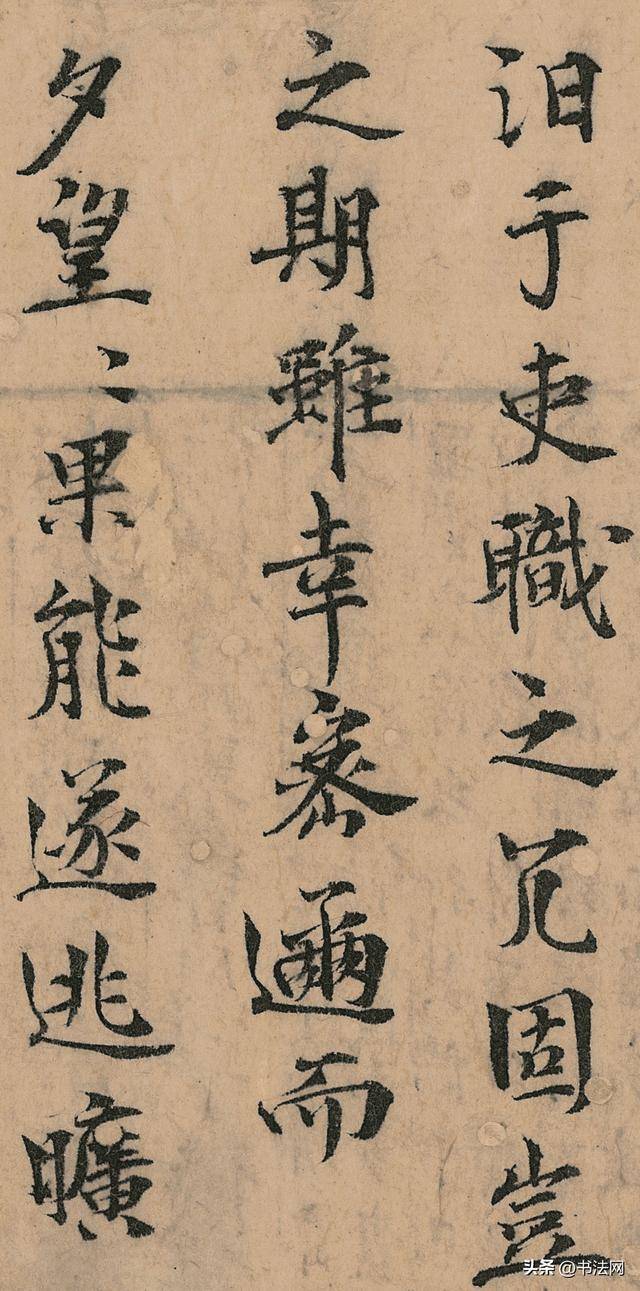 汩于吏職之冗固豈
之期雖幸密邇而
夕望〻果能遂逃曠
头条 @书法网